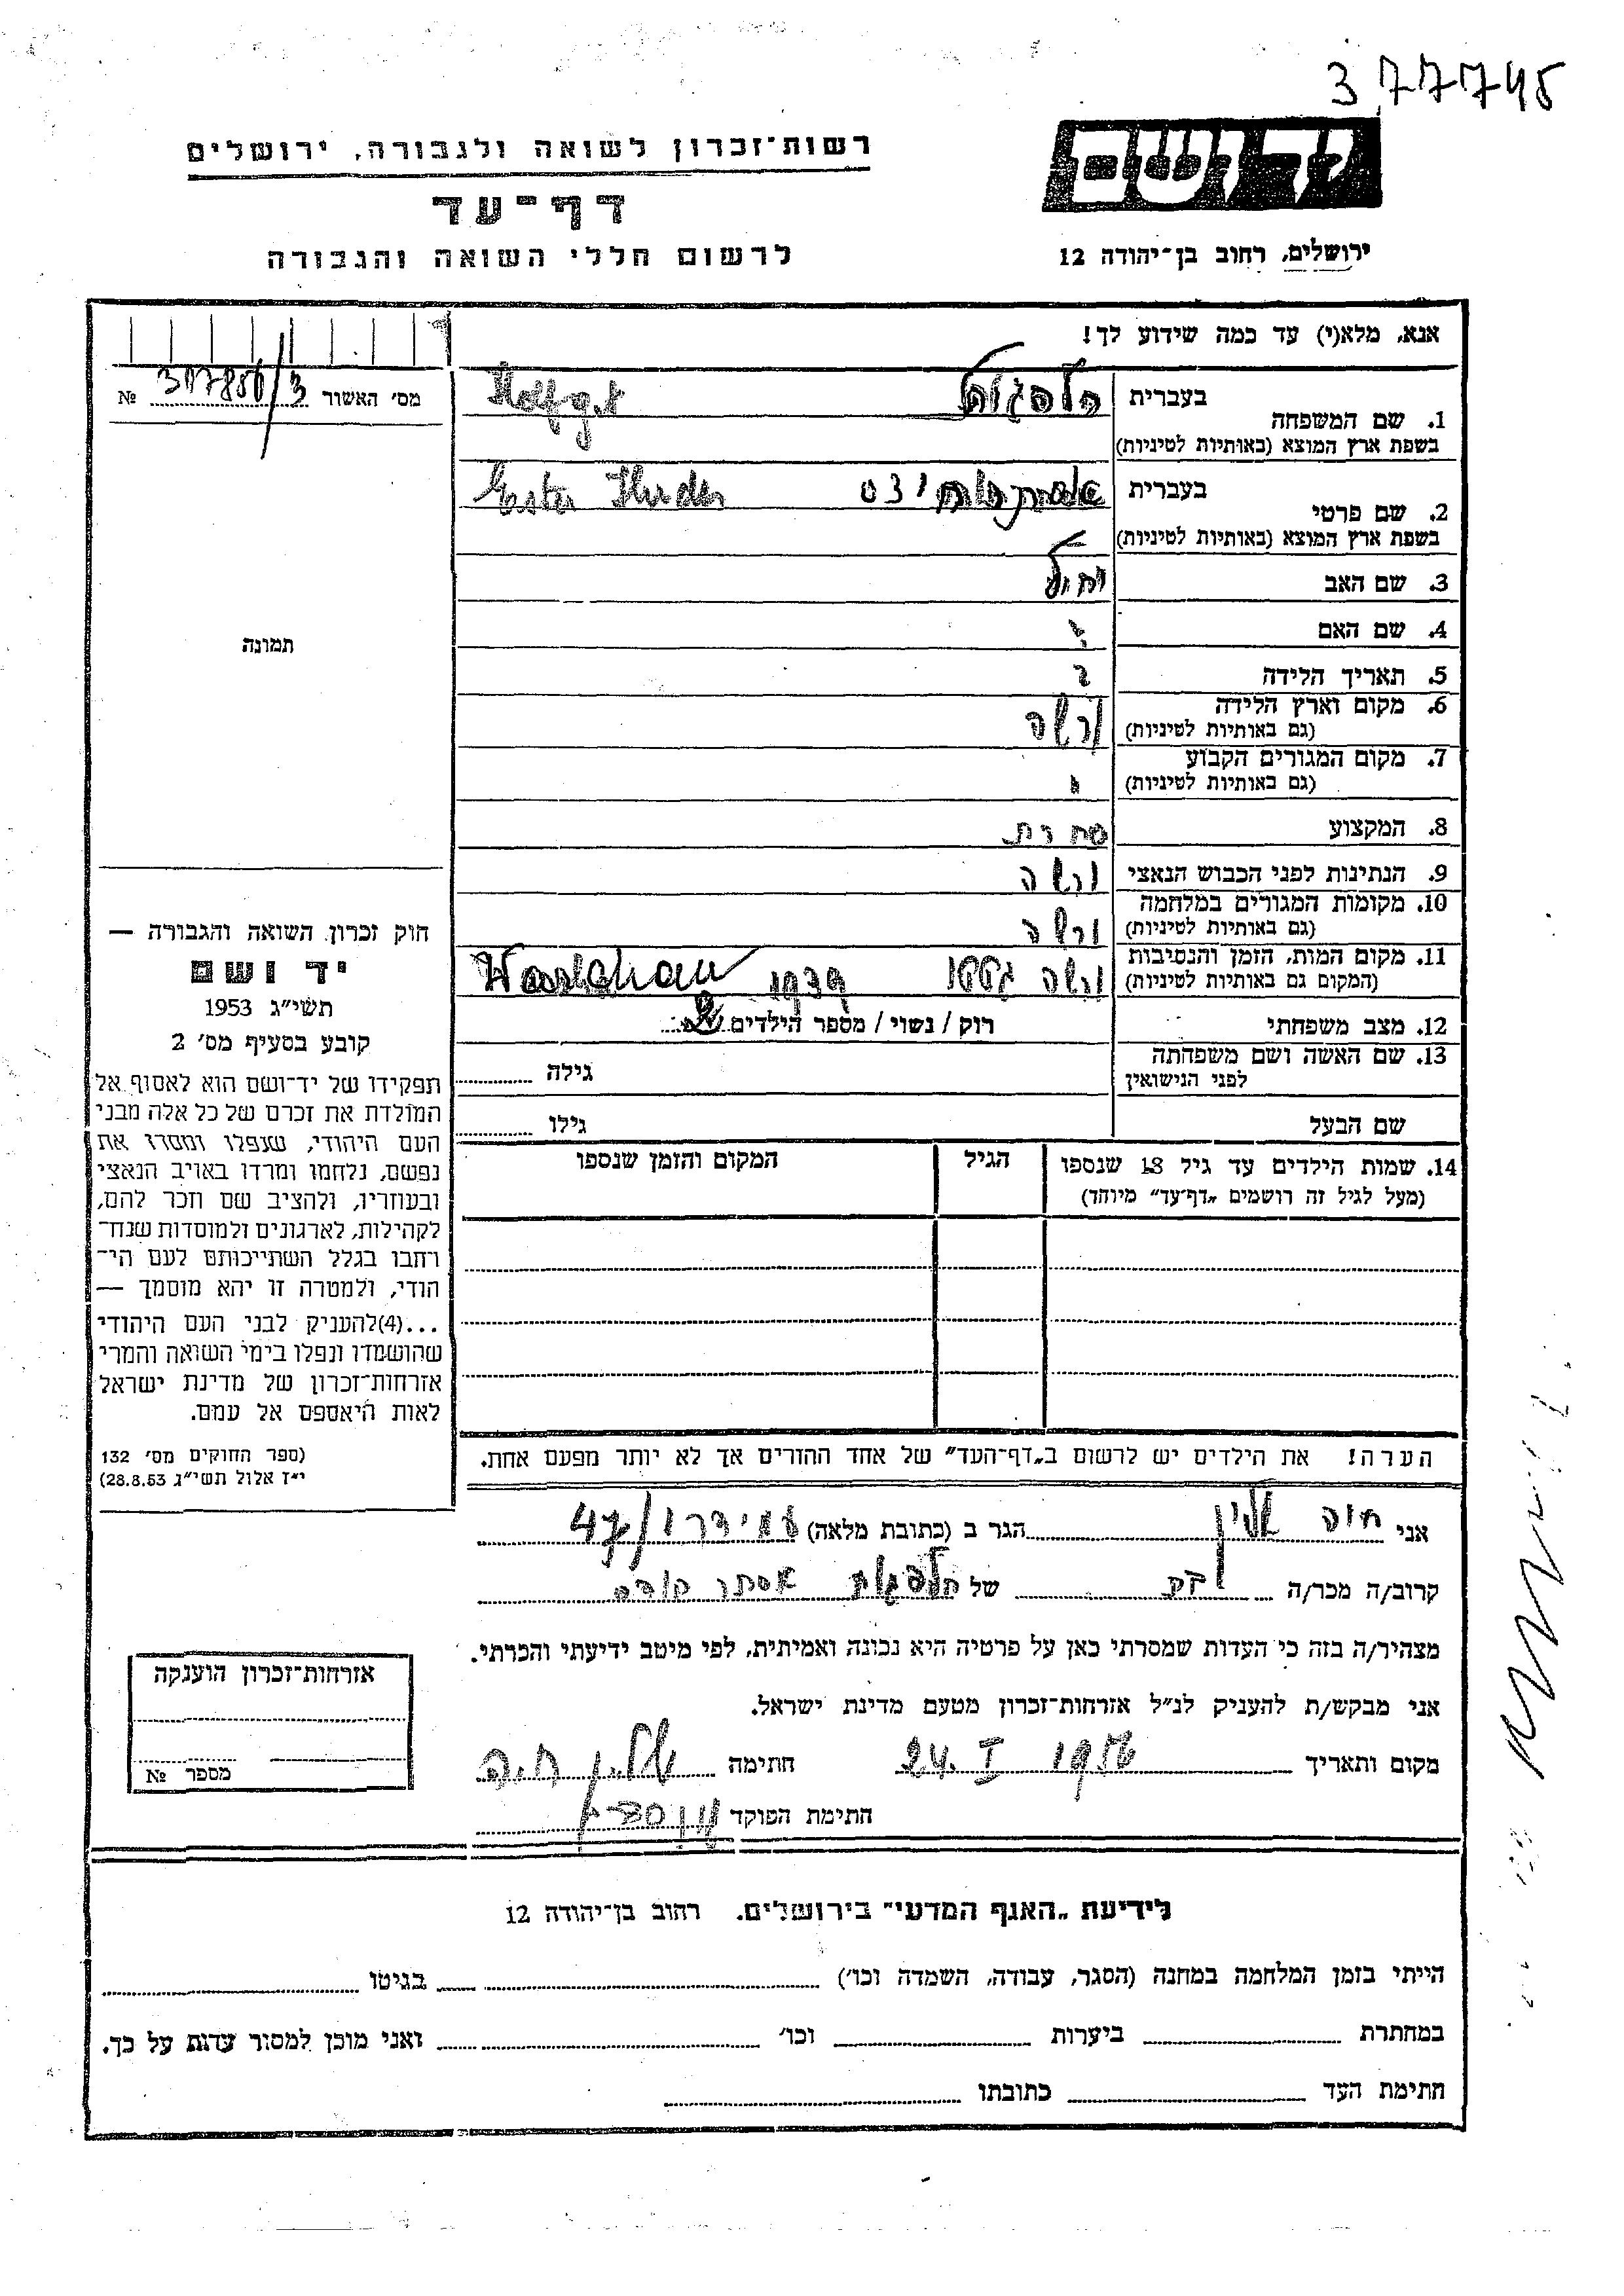 377745
רשות־זכרון לשואה ולגבורה, ירושלים
דף־עד
לרשום חללי השואה והגבורה
יד ושם
ירושלים, רחוב בן־יהודה 12
אנא, מלא(י) עד כמה שידוע לך!
מס' האשור №
1. שם המשפחה בעברית
בשפת ארץ המוצא (באותיות לטיניות)
2. שם פרטי בעברית Ester
בשפת ארץ המוצא (באותיות לטיניות)
3. שם האב
4. שם האם ?
5. תאריך הלידה ?
6. מקום וארץ הלידה ורשה
(גם באותיות לטיניות)
7. מקום המגורים הקבוע
(גם באותיות לטיניות)
8. המקצוע
9. הנתינות לפני הכבוש הנאצי ורשה
10. מקומות המגורים במלחמה ורשה
(גם באותיות לטיניות)
11. מקום המות, הזמן והנסיבות ורשה גטו 1939
(המקום גם באותיות לטיניות)
12. מצב משפחתי רוק / נשוי / מספר הילדים
13. שם האשה ושם משפחתה גילה
לפני הנישואין
שם הבעל גילו
14. שמות הילדים עד גיל 18 שנספו הגיל המקום והזמן שנספו
(מעל לגיל זה רושמים „דף־עד” מיוחד)
הערה! את הילדים יש לרשום ב„דף־העד” של אחד ההורים אך לא יותר מפעם אחת.
תמונה
חוק זכרון השואה והגבורה —
יד ושם
תשי"ג 1953
קובע בסעיף מס' 2
תפקידו של יד־ושם הוא לאסוף אל
המולדת את זכרם של כל אלה מבני
העם היהודי, שנפלו ומסרו את
נפשם, נלחמו ומרדו באויב הנאצי
ובעוזריו, ולהציב שם וזכר להם,
לקהילות, לארגונים ולמוסדות שנח־
רחבו בגלל השתייכותם לעם הי־
הודי, ולמטרה זו יהא מוסמך —
...(4)להעניק לבני העם היהודי
שהושמדו ונפלו בימי השואה והמרי
אזרחות־זכרון של מדינת ישראל
לאות היאספם אל עמם.
(ספר החוקים מס' 132
י"ז אלול תשי"ג 28.8.53)
אני חיה הגר ב (כתובת מלאה) עמידר 47/
קרוב/ה מכר/ה של אסתר
מצהיר/ה בזה כי העדות שמסרתי כאן על פרטיה היא נכונה ואמיתית, לפי מיטב ידיעתי והכרתי.
אני מבקש/ת להעניק לנ"ל אזרחות־זכרון מטעם מדינת ישראל.
מקום ותאריך 24. I 1956 חתימה חיה
חתימת הפוקד
אזרחות־זכרון הוענקה
מספר №
לידיעת „האגף המדעי” בירושלים. רחוב בן־יהודה 12
הייתי בזמן המלחמה במחנה (הסגר, עבודה, השמדה וכו') בגיטו
במחתרת ביערות וכו' ואני מוכן למסור עדות על כך.
חתימת העד כתובתו